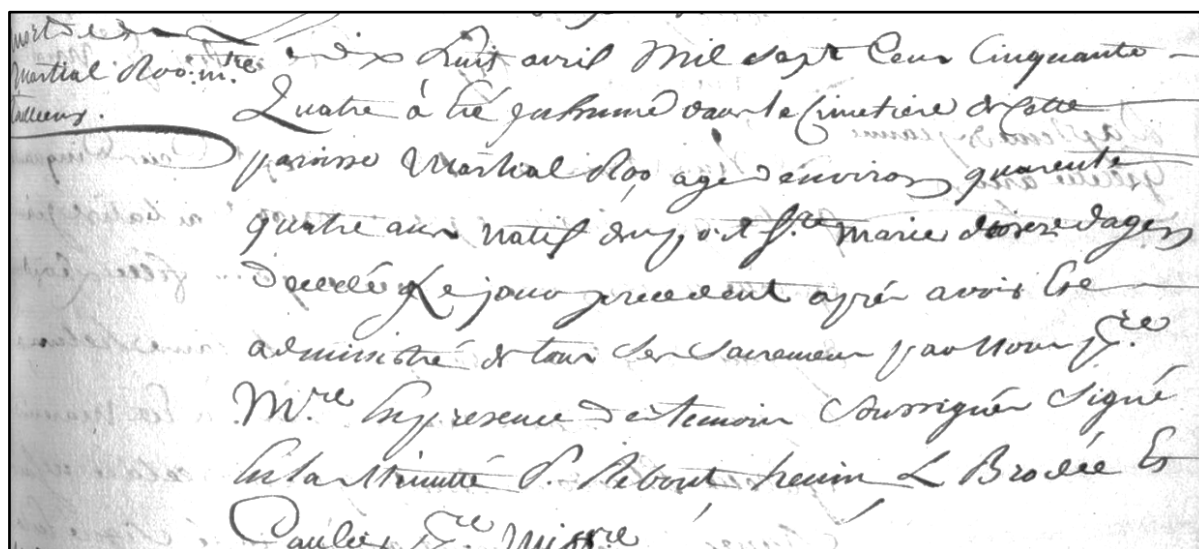 mort de
Martial Roo: m.tre
tailleur.
dix huit avril Mil Sept Cens Cinquante
Quatre à été inhumé dans le Cimetiere de Cette
paroisse Martial Roo agé denviron quarente
quatre ans natif du port Ste marie diocese dagen
Decedé Le jour precedent aprés avoir Ete
administré de tous Ses Sacremens par Nous p.tre
M.re En presence des temoins Soussignés Signé
En la Minutte P. Ribout henin L Brodée Et
p.tre Miss.re